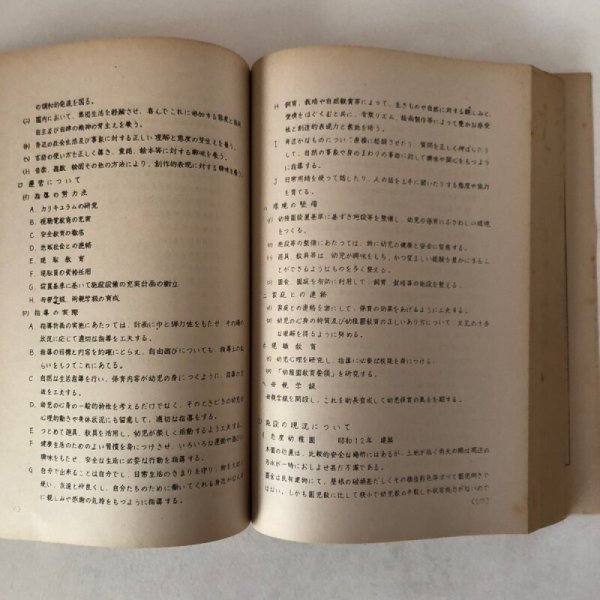 の調和的発達を図る。
(ろ) 園内において、集団生活を経験させ、喜んでこれに参加する態度と協同
自主及び自律の精神の芽生えを養う。
(は) 身辺の社会生活及び事象に対する正しい理解と態度の芽生えを養う。
(に) 言語の使い方を正しく導き、童話、絵本等に対する興味を養う。
(ホ) 音楽、遊戯、絵画その他の方法により、創作的表現に対する興味を養う。
ロ 運営について
(イ) 指導の努力点
A. カリキュラムの研究
B. 視聴覚教育の充実
C. 安全教育の徹底
D. 地域社会との連絡
E. 現職教育
F. 現職員の資格任用
G. 設置基準に基いて施設設備の充実計画の樹立
H. 母親学級、両親学級の育成
(ロ) 指導の実際
A 指導計画の実施にあたっては、計画に巾と弾力性をもたせ、その時の
状況に応じて適切な指導を工夫する。
B 指導の目標と内容を的確にとらえ、自由遊びについても、指導上のね
らいをもつてこれにあてる。
C 自然な生活指導を行い、保育内容が幼児の身につくように、指導の方
法を工夫する。
D 幼児の心身の一般的特性を考えるだけでなく、そのときどきの幼児の
心理的動きや身体状況にも留意して、適切な指導をする。
E つとめて遊具、教具を活用し、幼児が楽しく活動するよう工夫する。
F 健康生活のためのよい習慣を身につけさせ、いろいろな運動や遊びに
興味をもたせ、安全な生活に必要な行動を指導する。
G 自分で出来ることは自分でし、日常生活のきまりを守り、
使い、友達と仲良くし、自分たちのために働いてくれる身近な人々
に親しみや感謝の気持をもつように指導する。
H 飼育、栽培や自然観賞等によって、生きものや自然に対する親しみと、
愛情をはぐくむと共に、音楽リズム、絵画製作等によって豊かな感受
性と創造的表現力と表能を培う。
I 身近かなものについて、直接に経験させたり、質問を正しく伸ばしたり
して、自然の事象や身のまわりの事物に対して興味や関心をもつよう
に指導する。
J 日常用語を使って話したり、人の話を上手に聞いたりする態度や能力
を育てる。
ハ 環境の整備
(イ) 幼稚園設置基準に基ずき施設等を整備し、幼児の保育にふさわしい環境
をつくる。
(ロ) 施設等の整備にあたっては、特に幼児の健康と安全に留意する。
(ハ) 遊具、教具等は、幼児が興味をもち、かつ望ましい経験を豊かにするこ
とができるようなものを多く整える。
(ニ) 園舎、園庭を有効に利用して、飼育、栽培等の施設を整える。
ニ 家庭との連絡
(イ) 家庭との連絡を密にして、保育の効果をあげるように工夫する。
(ロ) 幼児の心身の特質及び幼稚園教育の正しいあり方について、父兄の十分
な理解を得るように努める。
ホ 現職教育
(イ) 幼児心理を研究し、指導に必要な技能を身につける。
(ロ) 「幼稚園教育要領」を研究する。
ヘ 母親学級
母親学級を開設し、これを助長育成して幼児保育の高を期する。
施設の現況について
幼稚園 昭和12年 建築
本園の位置は、比較的安全な場所にはあるが、土地が低く雨天の際は周辺の
雨水が一時におしよせ甚だ不潔である。
園舎は民有建物にて、屋根の破損甚だしくその構造形態等すべて園児向きで
はない。しかも園児数に比して狭小で幼児数の半数しか収容能力がないので